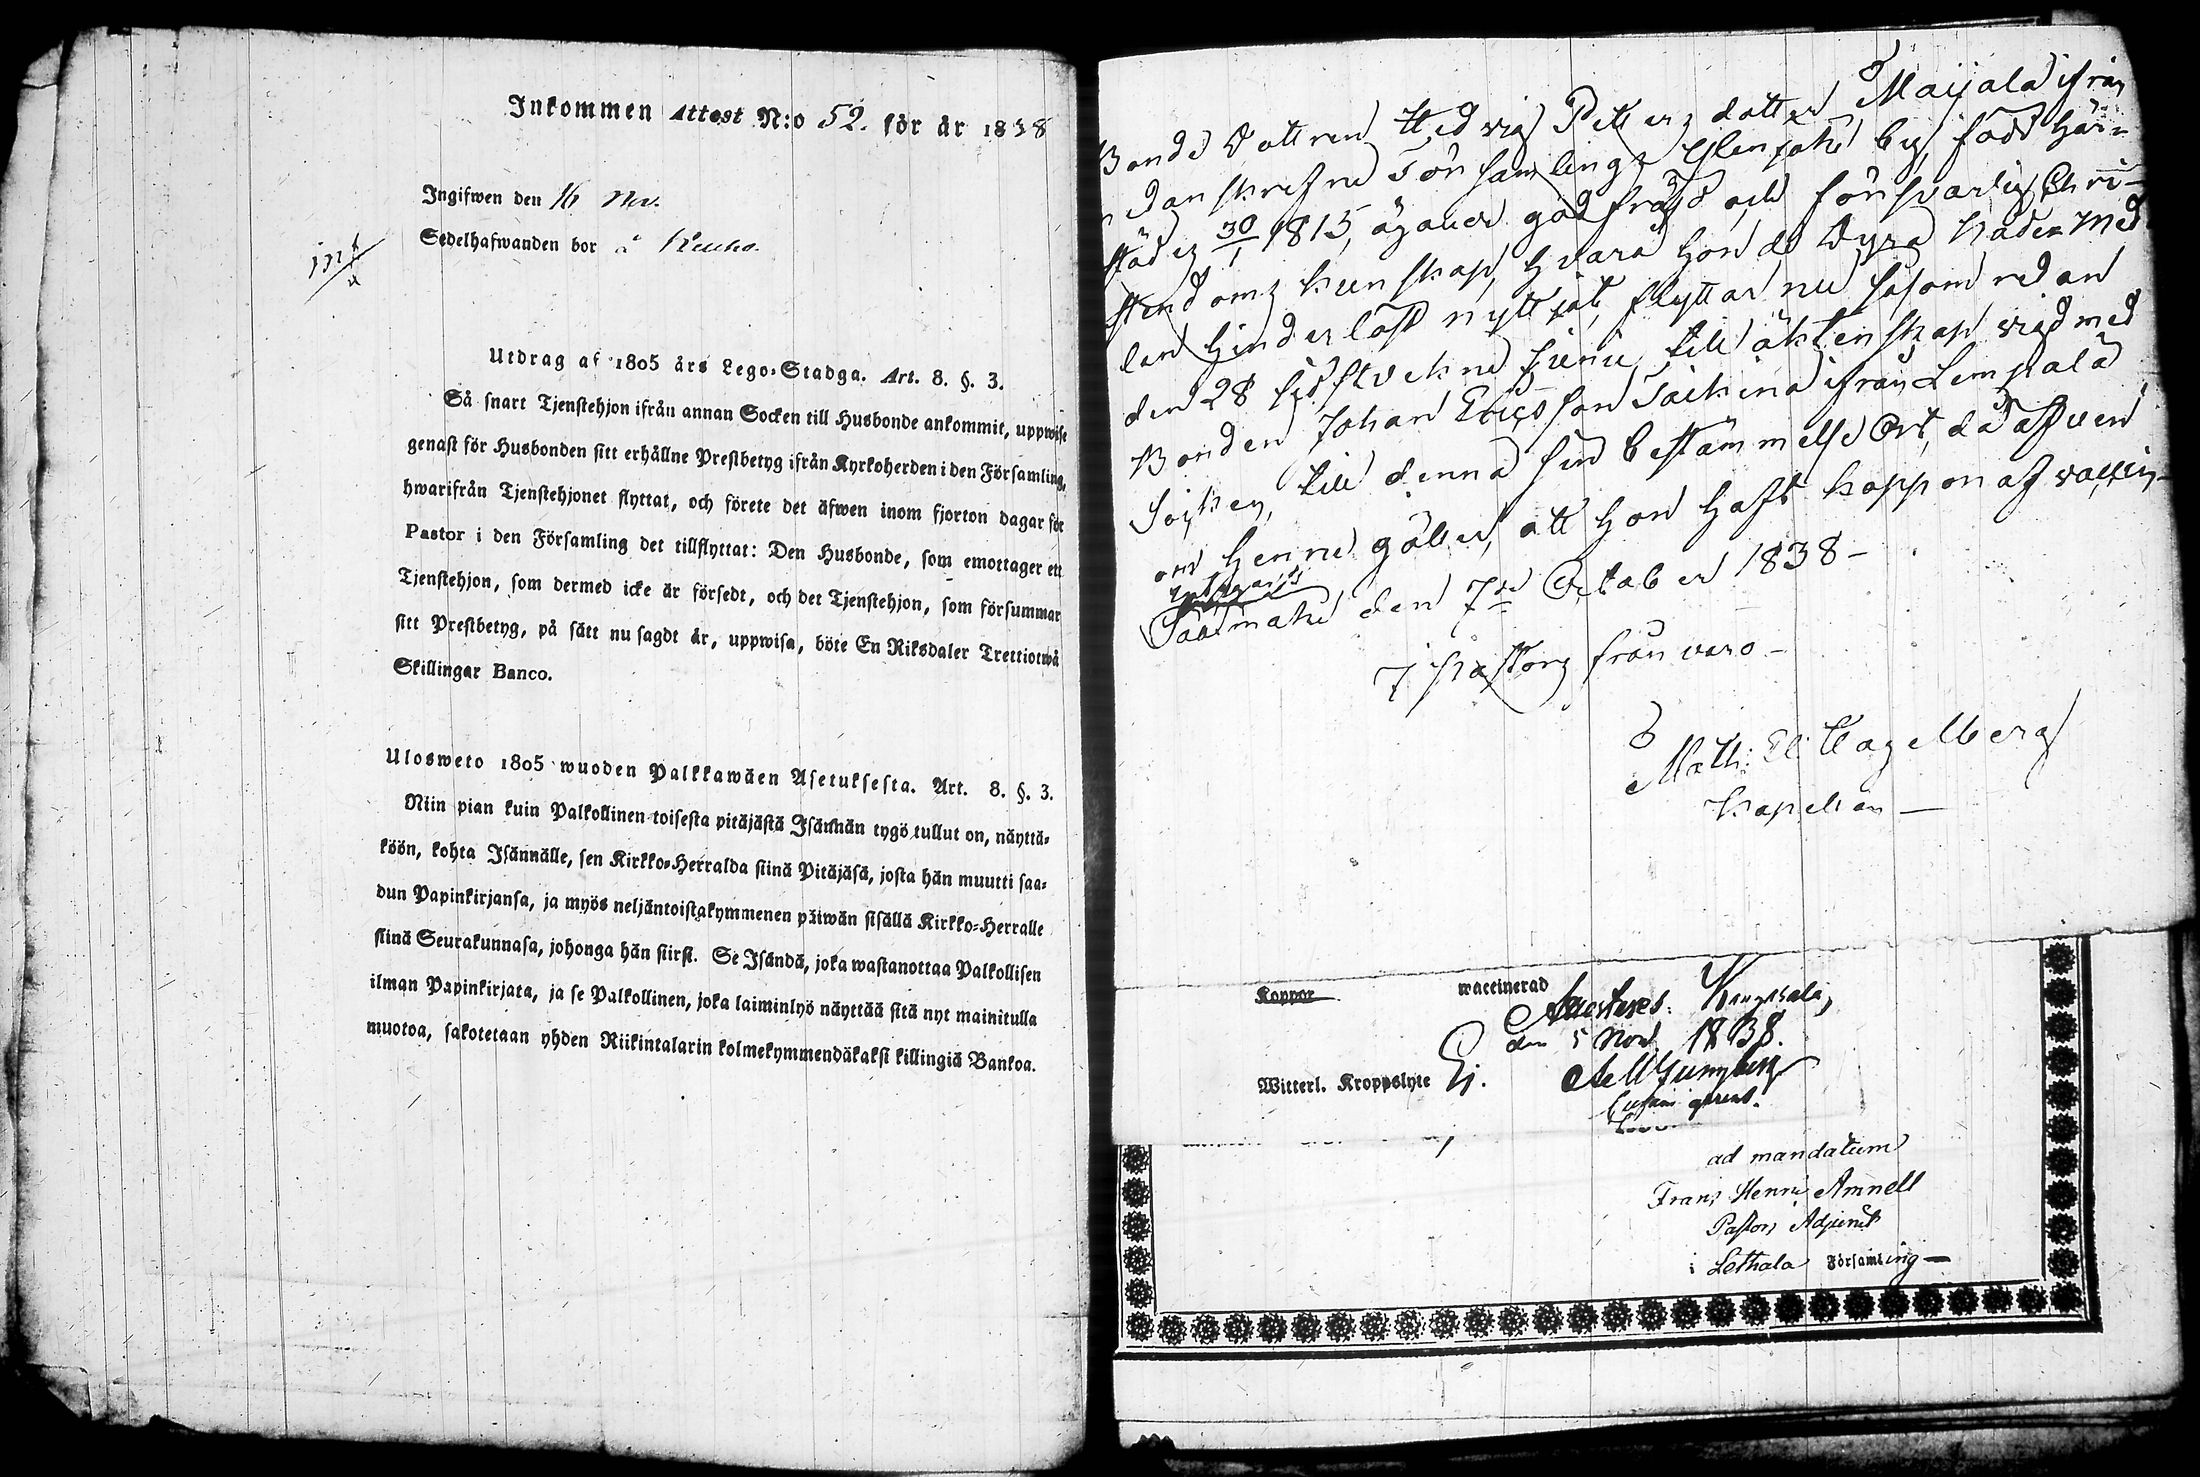 Inkommen Attest N:o 52. för år 1838
Ingifwen den 16 Nov.
Sedelhafwanden bor å
int
Utdrag af 1805 års Lego-Stadga. Art. 8. §. 3.
Så snart Tjenstehjon ifrån annan Socken till Husbonde ankommit, uppwise
genast för Husbonden sitt erhållne Prestbetyg ifrån Kyrkoherden i den Församling,
hwarifrån Tjenstehjonet flyttat, och förete det äfwen inom fjorton dagar för
Pastor i den Församling det tillflyttat: Den Husbonde, som emottager ett
Tjenstehjon, som dermed icke är försedt, och det Tjenstehjon, som försummar
sitt Prestbetyg, på sätt nu sagdt är, uppwisa, böte En Riksdaler Trettiotwå
Skillingar Banco.
Ulosweto 1805 wuoden Palkkawäen Asetuksesta. Art. 8. §. 3.
Niin pian kuin Palkollinen toisesta pitäjästä Isännän tygö tullut on, näyttä-
köön, kohta Isännälle, sen Kirkko-Herralda siinä Pitäjäsä, josta hän muutti saa-
dun Papinkirjansa, ja myös neljäntoistakymmenen päiwän sisällä Kirkko-Herralle
siinä Seurakunnasa, johonga hän siirsi. Se Isändä, joka wastanottaa Palkollisen
ilman Papinkirjata, ja se Palkollinen, joka laiminlyö näyttää sitä nyt mainitulla
muotoa, sakotetaan yhden Riikintalarin kolmekymmendäkaksi killingiä Bankoa.
Bonde Dottren Hedvig Petters dotter Maijala ifrån
nedanskrefne Församlings by, född här-
städes 30/1 1815, äger god fräjd och försvarlig Chri-
stendoms kunskap, hvara hon de Dyra Nådenmed-
len hinderlöst nyttjat, flyttar nu såsom redan
den 28 sistvekne Junii till äktenskap vigd med
Bonden Johan Ericsson ifrån Lempälä
Socken, till denna sin bestämmelse Ort, då äfven
om henne gäller, att hon haft koppor af vaccin-
Säämäki den 7de October 1838 -
I Pastors frånvaro -
Math: El: Hagelberg
Kapellan -
Koppor waccinerad
den 5 Nov. 1838.
Witterl. Kroppslyte Ej.
ad mandatum
Frans Henric Amnell
Pastors Adjunct
i Lethala Församling -